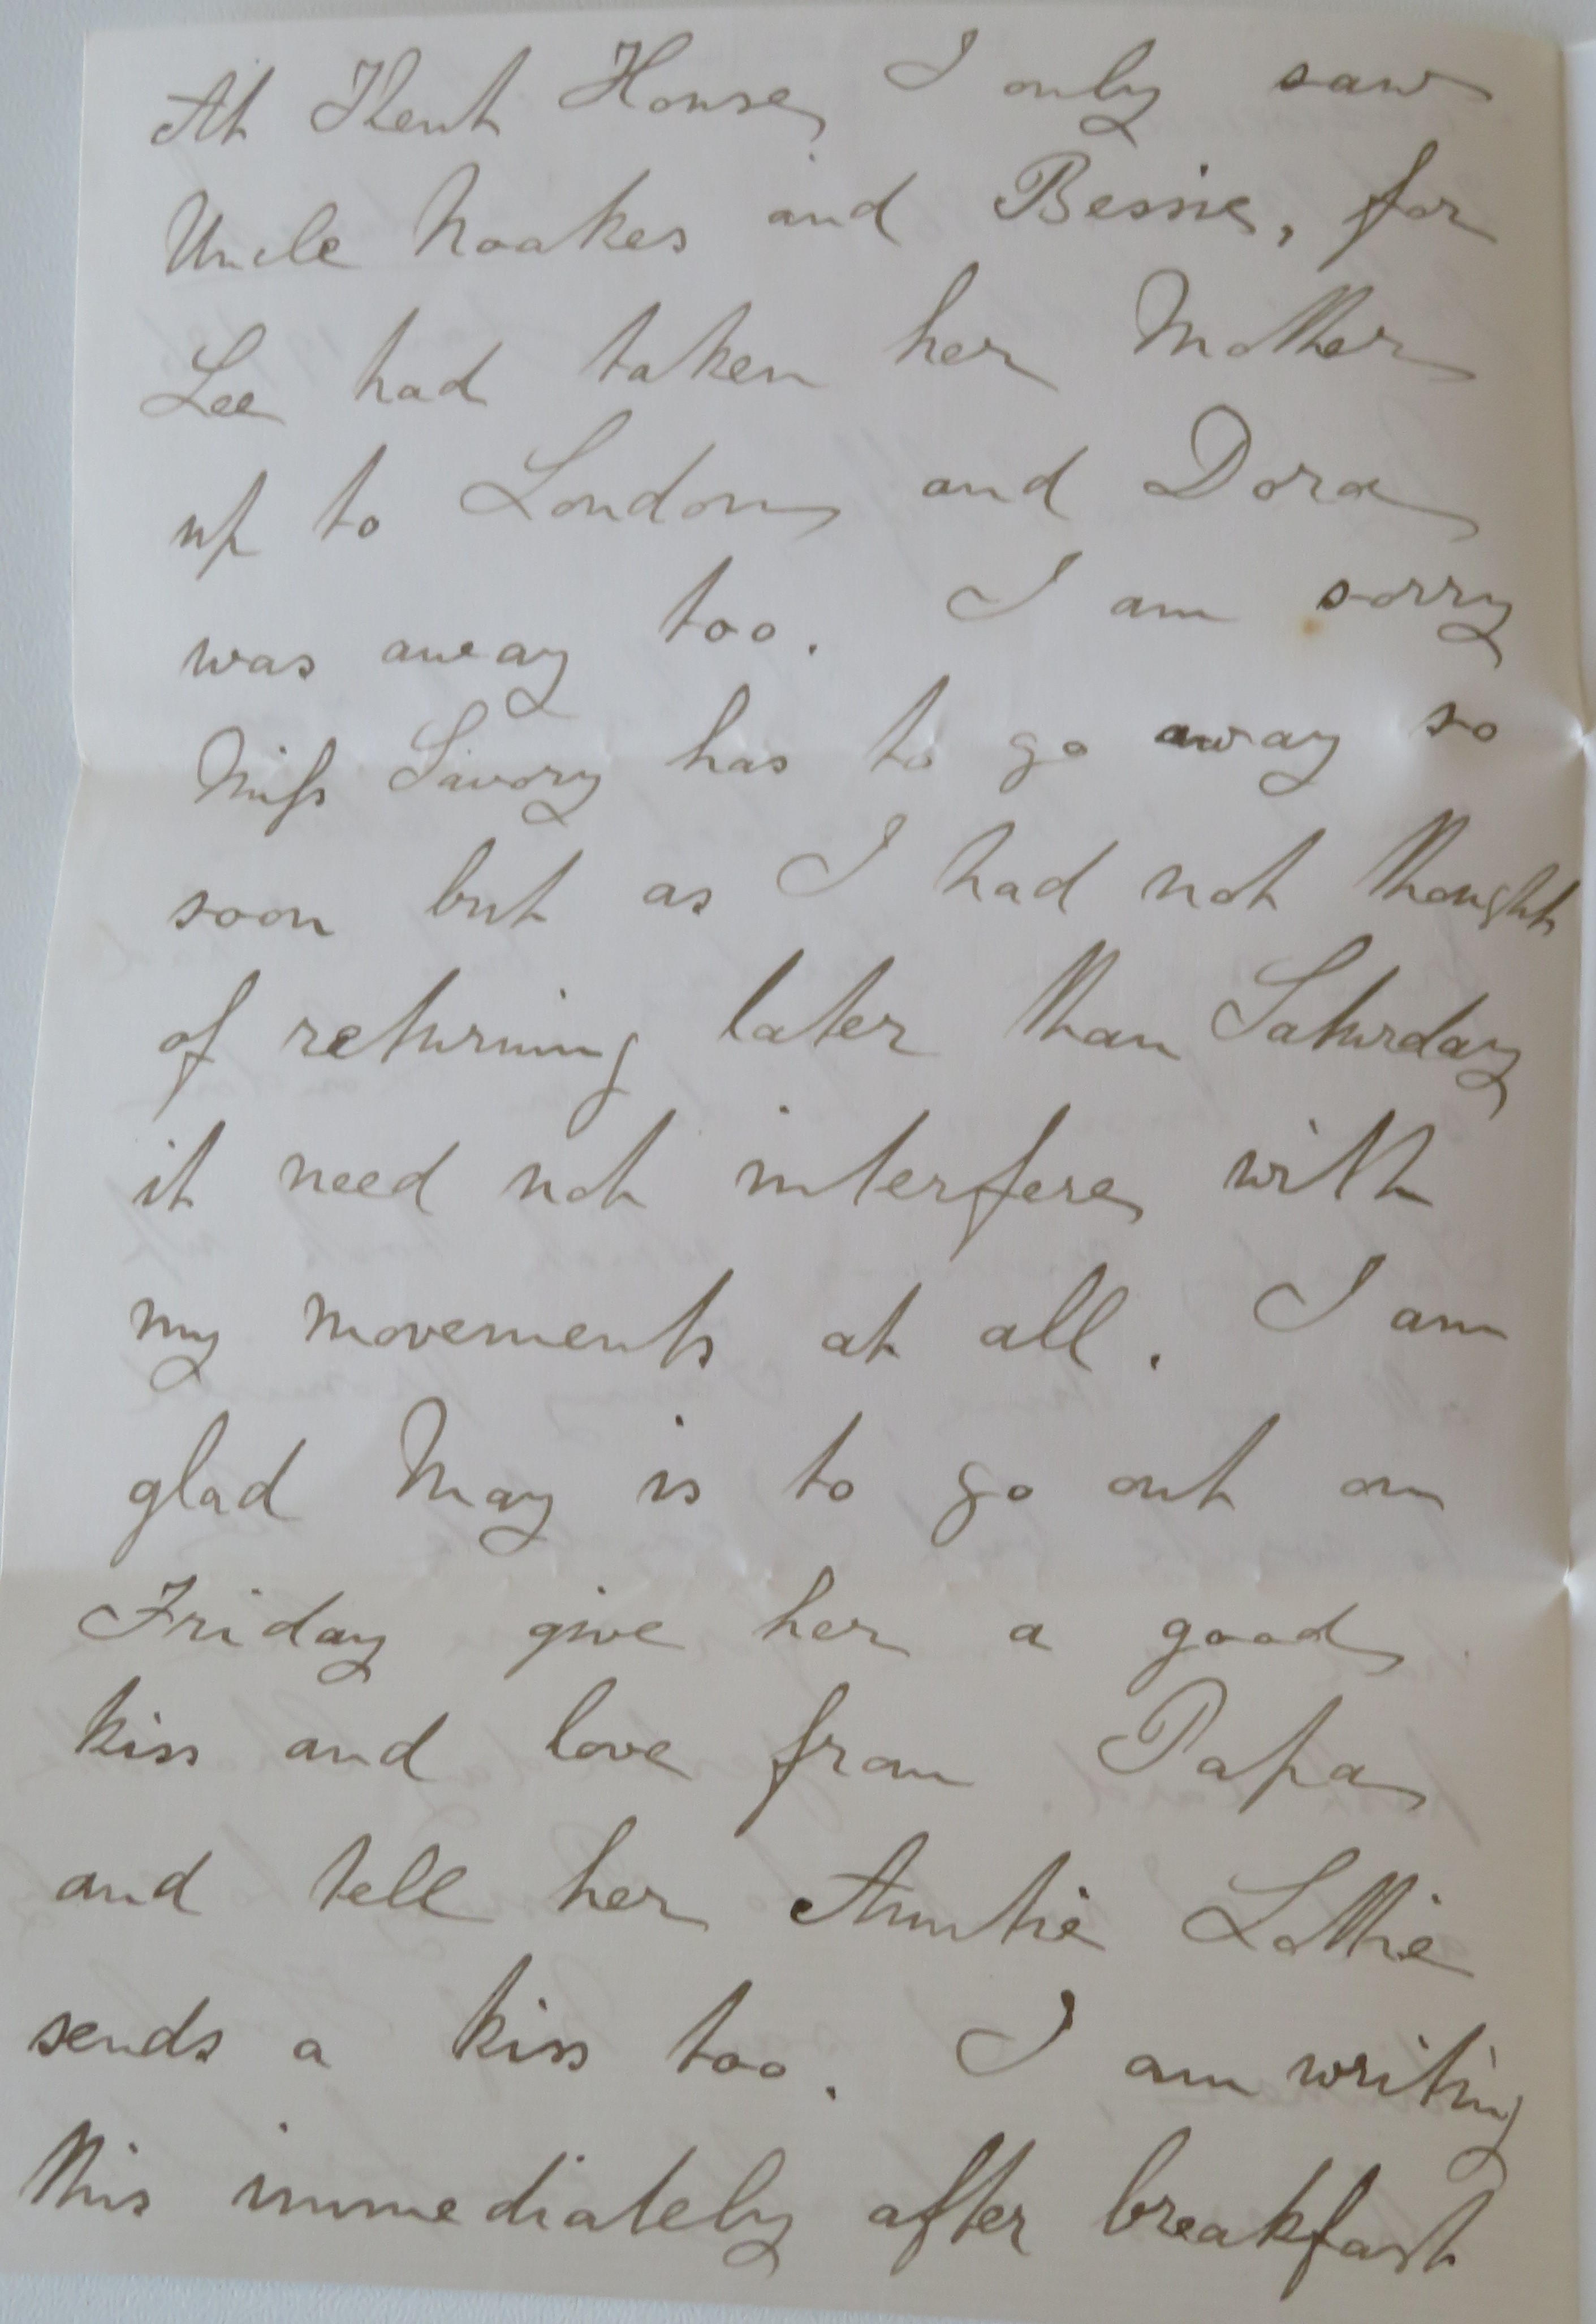 At Kent House I only saw
Uncle Noakes and Bessie, for
Lee had taken her Mother
up to London and Dora
was away too. I am sorry
Miss Savory has to go away so
soon but as I had not thought
of returning later than Saturday
it need not interfere with
my movements at all. I am
glad May is to go out on
Friday give her a good
kiss and love from Papa
and tell her Auntie Lottie
sends a kiss too. I am writing
this immediately after breakfast